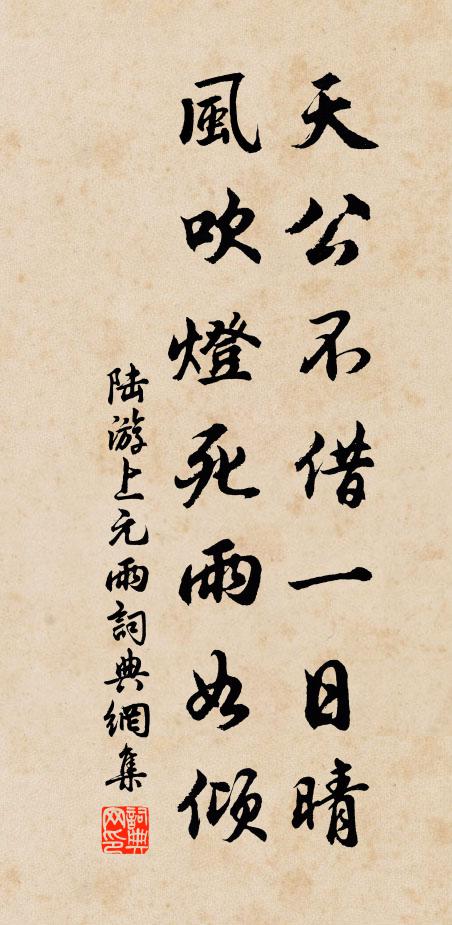 天公不借一日晴
風吹燈死雨如傾
陆游上元雨詞典網集
詞典網印